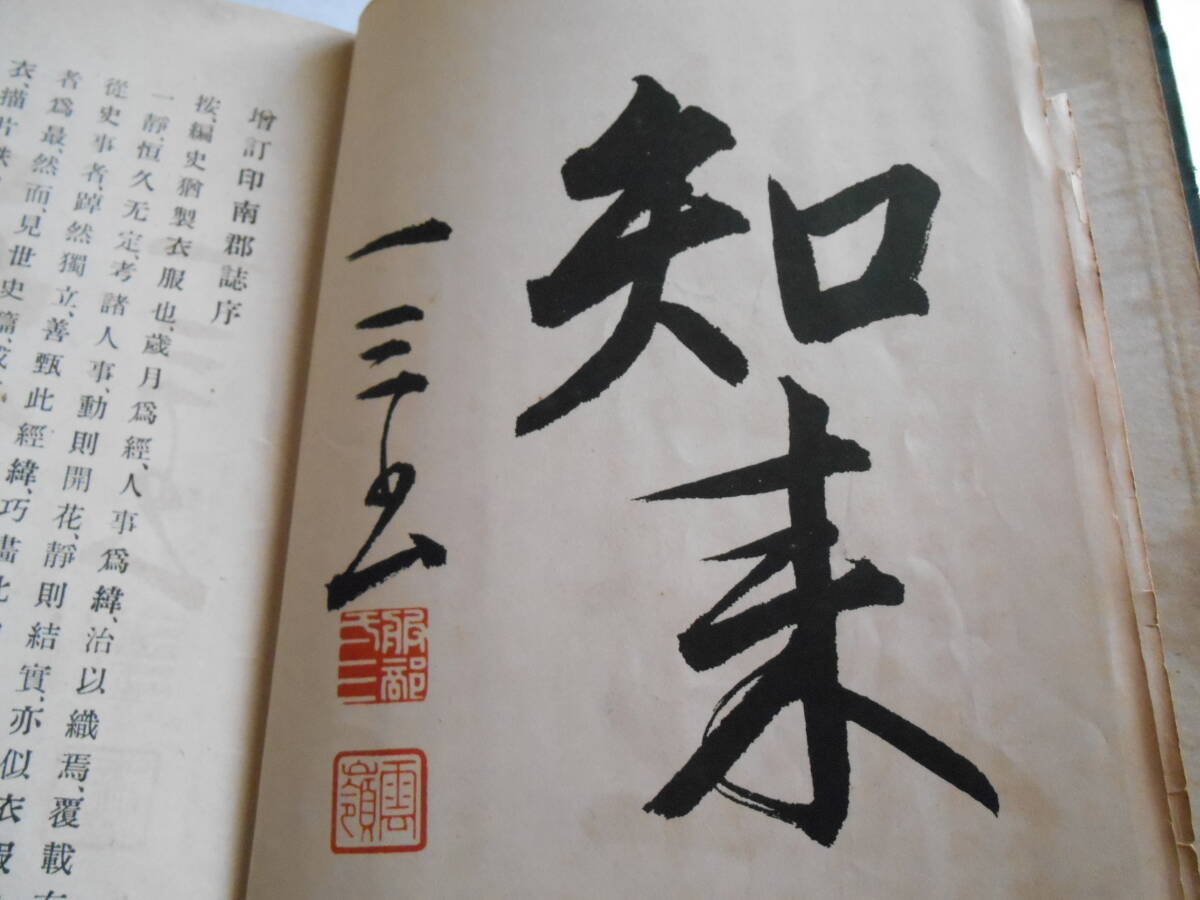 知来
一三书
服部一三
雲嶺
增訂印南郡誌序
按、編史猶製衣服也、歲月爲經、人事爲緯、治以織焉、覆載
一靜、恒久无定、考諸人事、動則開花、靜則結實、亦似衣服
從史事者、踔然獨立、善甄此經緯、巧畫
者爲最、然而、見世史籍、或
衣、描片